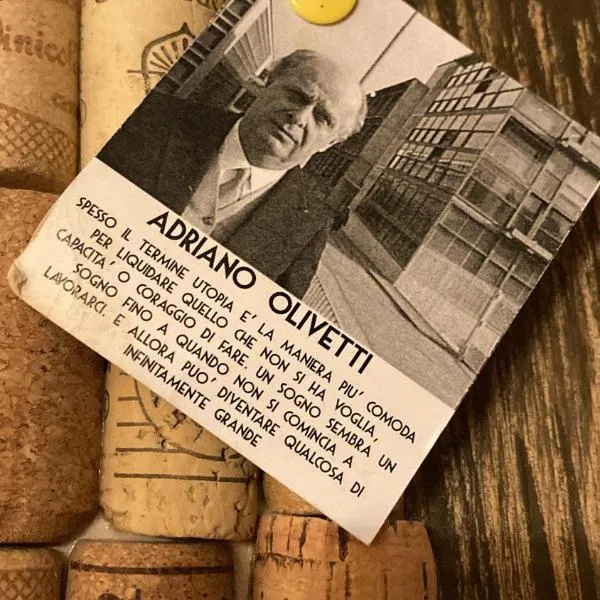 ADRIANO OLIVETTI
SPESSO IL TERMINE UTOPIA E' LA MANIERA PIU' COMODA
PER LIQUIDARE QUELLO CHE NON SI HA VOGLIA,
CAPACITA' O CORAGGIO DI FARE. UN SOGNO SEMBRA UN
SOGNO FINO A QUANDO NON SI COMINCIA A
LAVORARCI. E ALLORA PUO' DIVENTARE QUALCOSA DI
INFINITAMENTE GRANDE